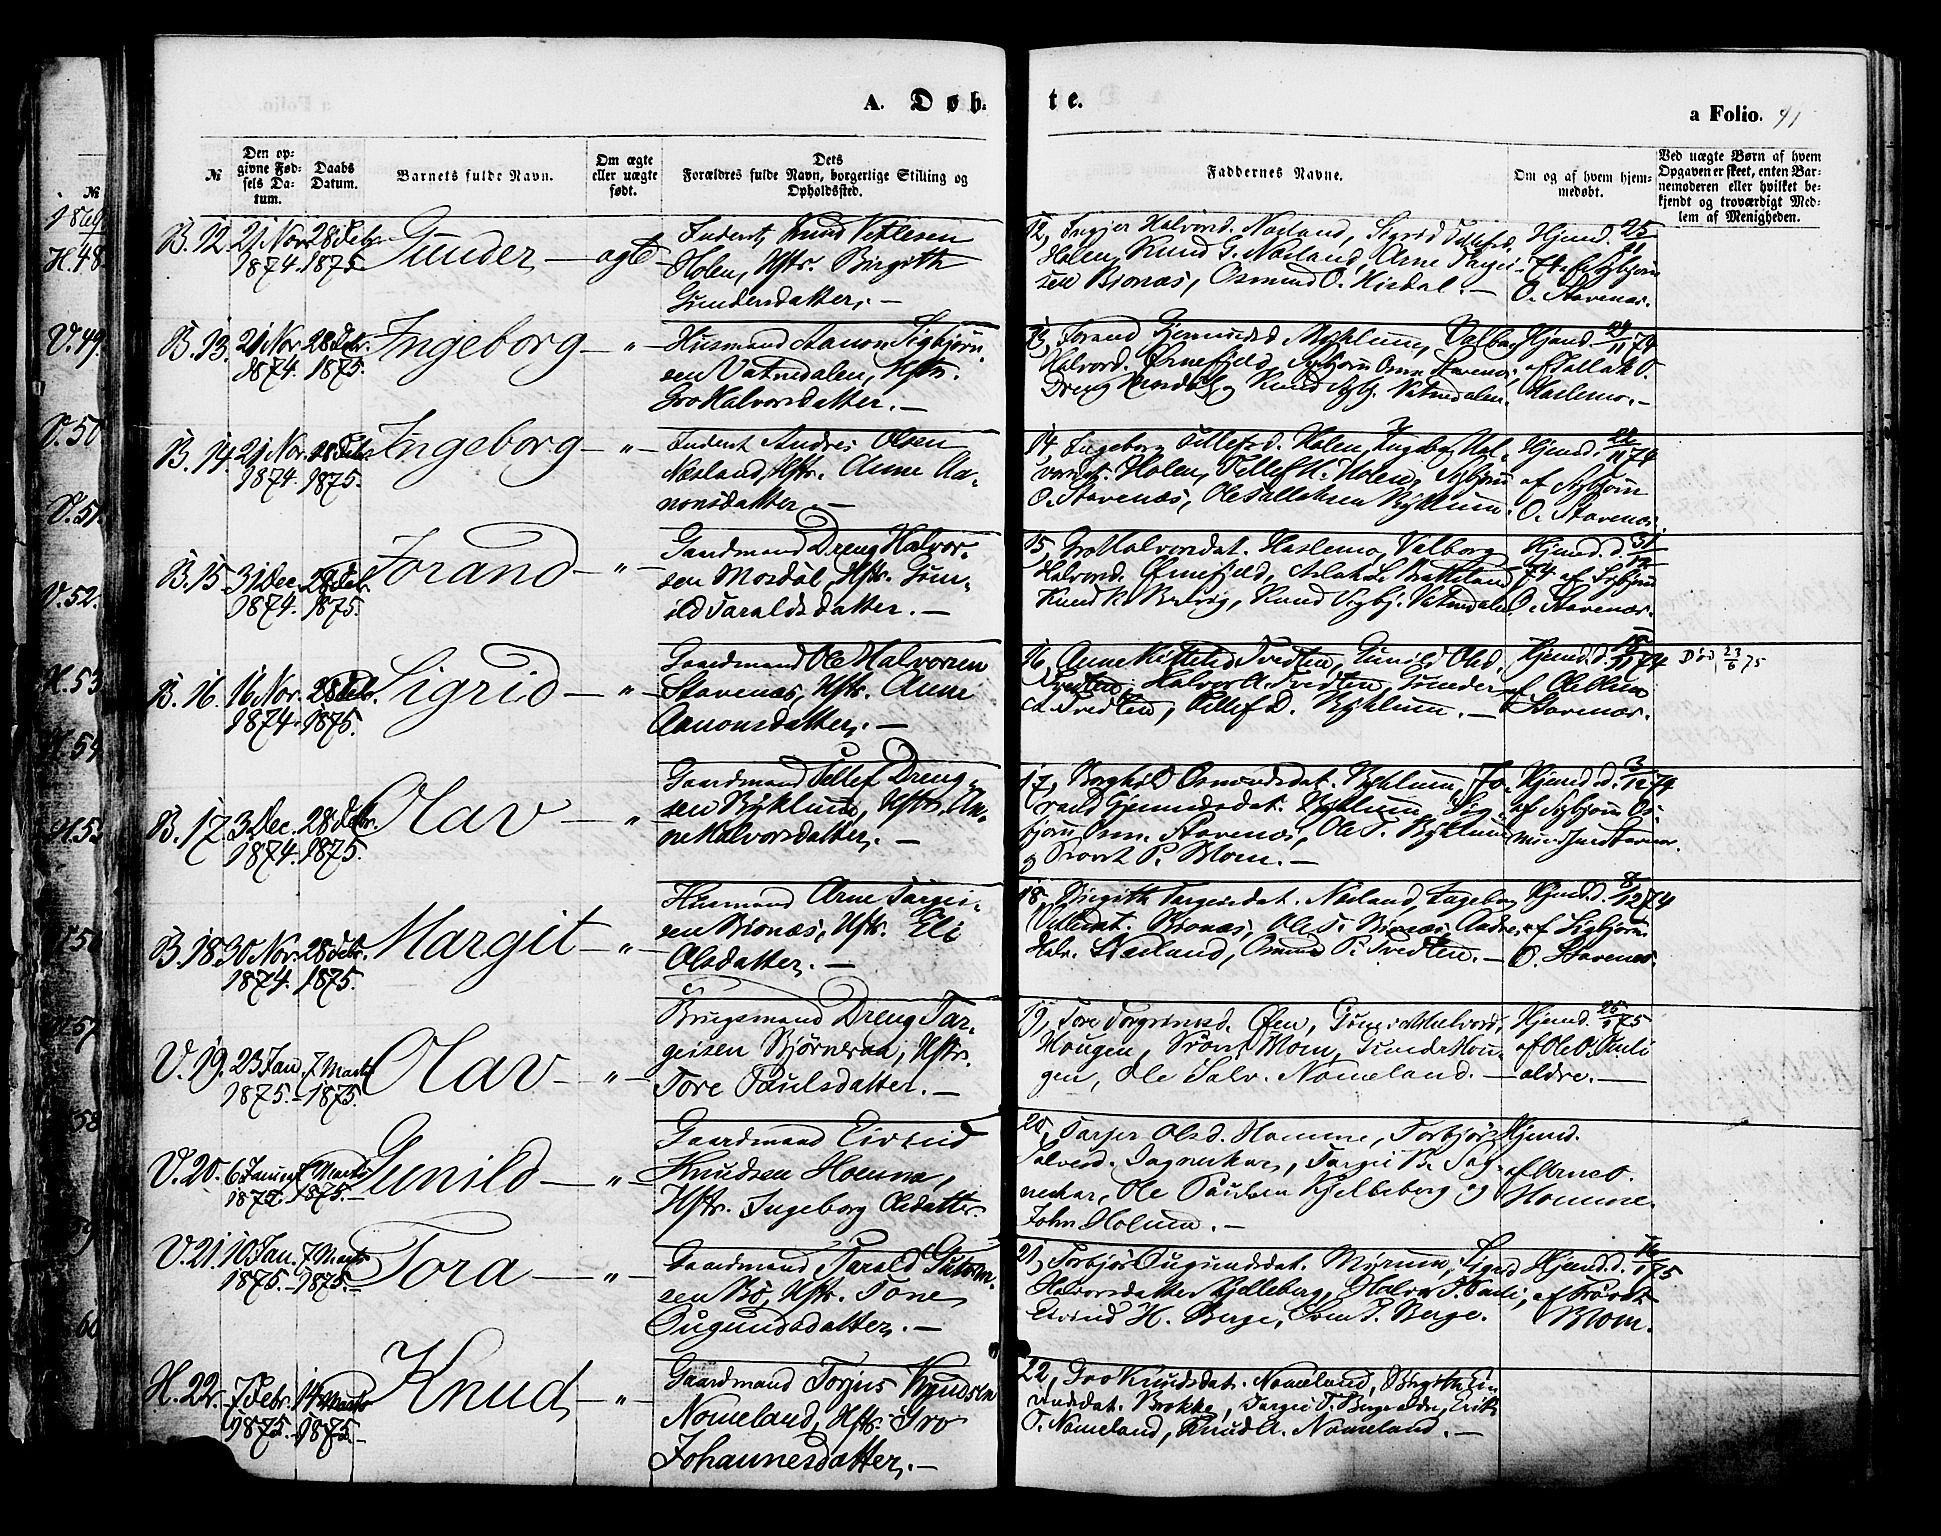 A. Døb-
te.
a Folio. 41
№
Den op-
givne Fød-
sels Da-
tum.
Daabs
Datum.
Barnets fulde Navn.
Om ægte
eller uægte
født.
Dets
Forældres fulde Navn, borgerlige Stilling og
Opholdssted.
Faddernes Navne.
Om og af hvem hjem-
medøbt.
Ved uægte Børn af hvem
Opgaven er skeet, enten Bar-
nemoderen eller hvilket be-
kjendt og troværdigt Med-
lem af Menigheden.
B. 12. 21 Nov. 1874. 28 Febr. 1875. Gunder — ægte —
Inderst, Knud Vetlesen
Holen, Hstr. Birgith
Gundersdatter. —
12, Torgjer Halvorsd. Næsland, Sigrid
Holen, Knud G. Næsland, Arne Targei-
sen Bjønæs, Osmund O.
Hjemd. 25/11
74 af Sigbjørn
O. Stavenæs.
B. 13. 21 Nov. 1874. 28 Febr. 1875. Ingeborg — " —
Husmand Aanon Sigbjørn-
sen Vatnedalen, Hstr.
Gro Halvorsdatter. —
13, Torand Gjermundsd. Byklum, Valborg
Halvorsd. Ørnefjeld, Sigbjørn Osm. Stavenæs,
Dreng Mosdøl og Knud Sigbj. Vatnedalen.
Hjemd. 24/11 74
af Tallak O.
Haslemo. —
B. 14. 21 Nov. 1874. 28 Febr. 1875. Ingeborg — " —
Inderst Andres Olsen
Næsland, Hstr. Anne Aa-
nonsdatter. —
14, Ingeborg Tellefsd. Holen, Ingeborg Hal-
vorsdat. Holen, Tellef H. Holen, Sigbjørn
O. Stavenæs, Ole Tallaksen Byklum.
Hjemd. d. 11 74
af Sigbjørn
O. Stavenæs.
B. 15. 31 Dec. 1874. 28 Feb. 1875. Torand — " —
Gaardmand Dreng Halvor-
sen Mosdøl, Hstr. Gun-
ild Taraldsdatter. —
15, Gro Halvorsdat. Haslemo, Valborg
Halvorsd. Ørnefjeld, Aslak L. Bratteland,
Knud K. Bervig, Knud Sigbj. Vatnedalen.
Hjemd. d. 31/12
74 af Sigbjørn
O. Stavenæs.
B. 16. 16 Nov. 1874. 28 Febr. 1875. Sigrid — " —
Gaardmand Ole Halvorsen
Stavenæs, Hstr. Anne
Aanonsdatter. —
16, Anne Kittelsd. Tvedten, Gunild Olsd.
Tvedten, Halvor A. Tvedten, Gunder
A. Tvedten, Tellef D. Byklum. —
Hjemd. d. 11 74
af
Stavenæs.
Død 23/6 75
B. 17. 3 Dec. 1874. 28 Febr. 1875. Olav — " —
Gaardmand Tellef Dreng-
sen Byklum, Hstr. An-
ne Halvorsdatter. —
17, Borghild Osmundsdat. Byklum, To-
rand Gjermundsdat. Byklum, Sig-
bjørn Osm. Stavenæs, Ole T. Byklum
og Srovt P. Mom. —
Hjemd. d. 3/12 74
af Sigbjørn Os-
mundsen Stavenæs.
B. 18. 30 Nov. 1874. 28 Febr. 1875. Margit — " —
Husmand Arne Targei-
sen Bjønæs, Hstr. Eli
Olsdatter. —
18, Birgith Targeisdat. Næsland, Ingeborg
Vetlesdat. Bjønæs, Ole T. Bjønæs, Andres
Halv. Næsland, Osmund P. Tvedten. —
Hjemd. d. 8/12 74
af Sigbjørn
O. Stavenæs.
V. 19. 23 Jan. 1875. — 7 Marts 1875. Olav — " —
Brugsmand Dreng Tar-
geisen Bjørneraa, Hstr.
Tore Paulsdatter. —
19, Tore Torgrimsd. Øfen, Halvorsd.
Hougen, Srovt Mom, Gunder Hou-
gen, Ole Salv. Nomeland. —
Hjemd. 25/1 75
af Ole O. Pauli
ældre. —
V. 20. 6 Januar 1875. 7 Marts 1875. — Gunild — " —
Gaardmand Eivind
Knudsen Homme,
Hstr. Ingeborg Olsdatter.
20, Targjer Olsd. Homme, Torbjør
Salvesd. Dagneskar, Targei B. Dag-
neskar, Ole Paulsen Kjelleberg og
John Holum. —
Hjemd.
af Arne O.
Homme.
V. 21. 10 Jan. 1875. — 7 Marts 1875. — Tora — " —
Gaardmand Tarald Guttorm-
sen Bø, Hstr. Tone
Ougundsdatter. —
21, Torbjør Ougundsdat. Mørum, Sigrid
Halvorsdatter Kjelleberg, Halvor T. Pauli,
Eivind H. Berge, Sven T. Berge.
Hjemd. d. 16/1 75
af Srovt
Mom.
H. 22. 7 Febr. 1875. — 14 Marts 1875. — Knud — " —
Gaardmand Torjus Knudsen
Nomeland, Hstr. Gro
Johannesdatter. —
22, Gro Knudsdat. Nomeland, Birgith Ei-
vindsdat. Brokke, Targei T. Berge ældre, Eirik
T. Nomeland, Knud A. Nomeland. —
№
H. 48.
V. 49.
V. 50.
V. 51.
V. 52.
H. 53.
H. 54.